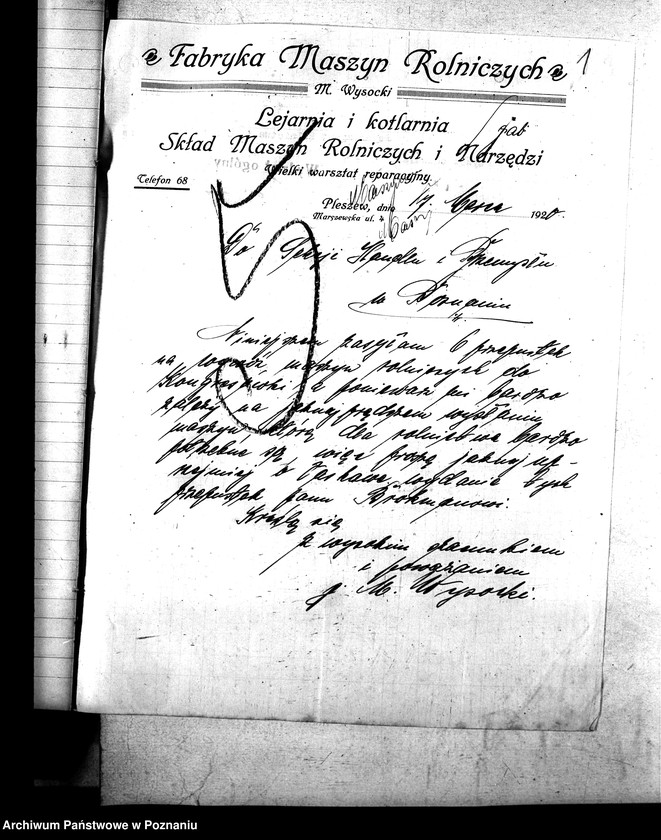 1
Fabryka Maszyn Rolniczych
M. Wysocki
Lejarnia i kotlarnia
Skład Maszyn Rolniczych i Narzędzi
Wielki warsztat reparacyjny.
Telefon 68
Pleszew, dnia 17. Marca 1920.
Marszewska ul. 4
Do Sekcji Handlu i Przemysłu
w Poznaniu
Niniejszem zasyłam 6 przepustek
na wywóz maszyn rolniczych do
Kongresówki a ponieważ mi bardzo
zależy na jaknajprędszem wysłaniu
maszyn, które dla rolnictwa bardzo
potrzebne są, więc proszę jaknajup-
rzejmiej o łaskawe wydanie tych
przepustek panu Brokmanowi.
Kreślę się
z wysokim szacunkiem
i poważaniem
M. Wysocki.
Archiwum Państwowe w Poznaniu